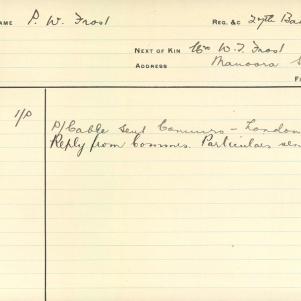 NAME P. W. Frost REG. &C 27th Ba
NEXT OF KIN W. T. Frost
ADDRESS Manoora S
F
P/Cable sent Commrs - London
Reply from Commrs. Particulars sen